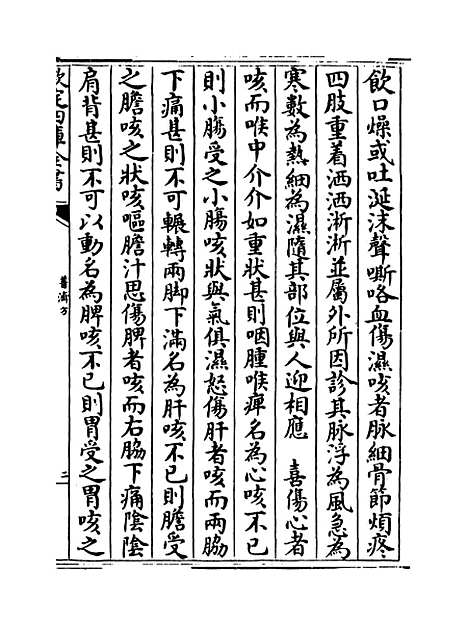 飲口燥或吐涎沫聲嘶咯血傷濕咳者脉細骨節煩疼
四肢重着洒洒淅淅並屬外所因診其脉浮為風急為
寒數為熱細為濕隨其部位與人迎相應　喜傷心者
咳而喉中介介如重狀甚則咽腫喉痺名為心咳不已
則小腸受之小腸咳狀與氣俱濕怒傷肝者咳而兩脇
下痛甚則不可輾轉兩脚下滿名為肝咳不已則膽受
之膽咳之狀咳嘔膽汁思傷脾者咳而右脇下痛陰陰
肩背甚則不可以動名為脾咳不已則胃受之胃咳之
欽定四庫全書
普濟方
二